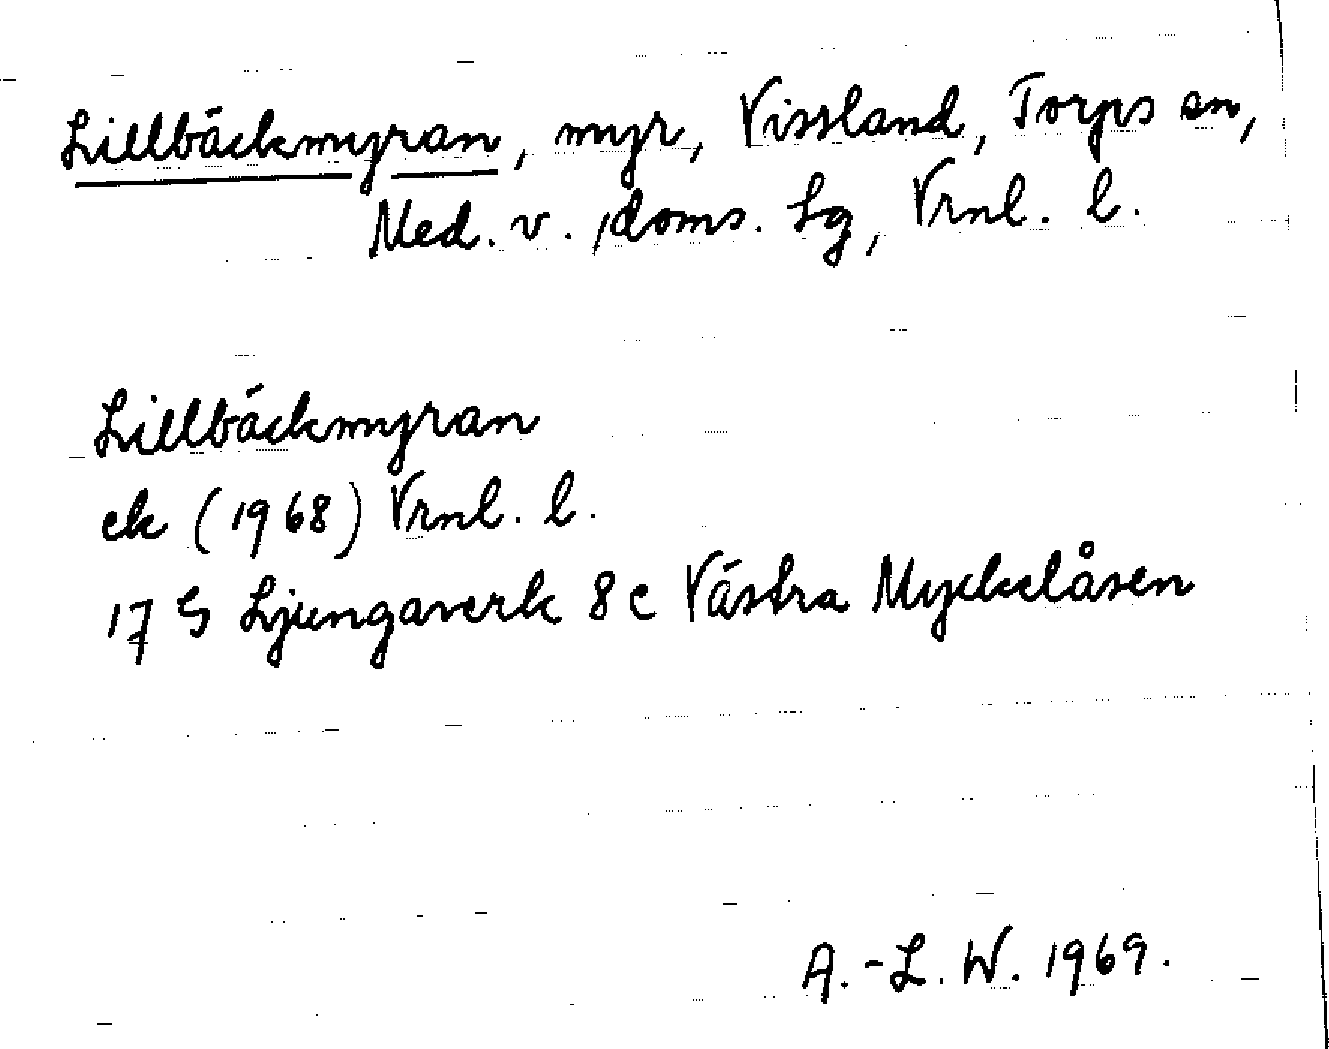 Lillbäckmyran, myr, Vissland, Torps sn,
Med. v. doms. Lg, Vrnl. l.
Lillbäckmyran
ek (1968) Vrnl. l.
17 G Ljungaverk 8 c Västra Myckelåsen
A.-L. W. 1969.